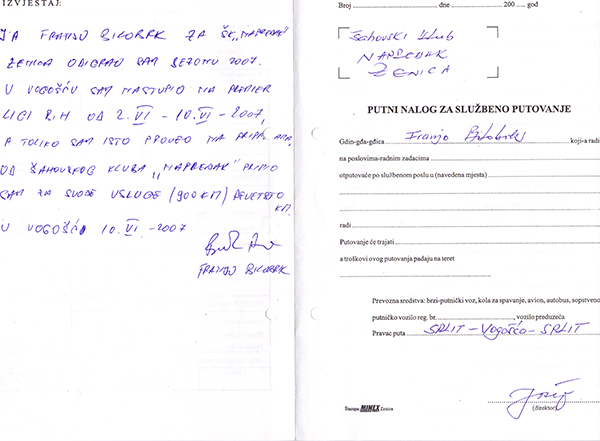 IZVJEŠTAJ:
JA FRANJO BILOBRK ZA ŠK „NAPREDAK“
ZENICA ODIGRAO SAM SEZONU 2007.
U VOGOŠĆU SAM NASTUPIO NA PREMIER
LIGI BIH OD 2. VI - 10. VI - 2007,
A TOLIKO SAM ISTO PROVEO NA
OD ŠAHOVSKOG KLUBA „NAPREDAK“ PRIMIO
SAM ZA SVOJE USLUGE (900 KM) DEVETSTO
KM.
U VOGOŠĆI 10. VI - 2007
FRANJO BILOBRK
Broj dne 200 god
Šahovski klub
NAPREDAK
ZENICA
PUTNI NALOG ZA SLUŽBENO PUTOVANJE
Gdin-gđa-gđica Franjo Bilobrk koji-a radi
na poslovima-radnim zadacima
otputovaće po službenom poslu u (navedena mjesta)
radi
Putovanje će trajati
a troškovi ovog putovanja padaju na teret
Prevozna sredstva: brzi-putnički voz, kola za spavanje, avion, autobus, sopstveno
putničko vozilo reg. br. , vozilo preduzeća
Pravac puta SPLIT - Vogošća - SPLIT
(direktor)
Štampa MINEX Zenica